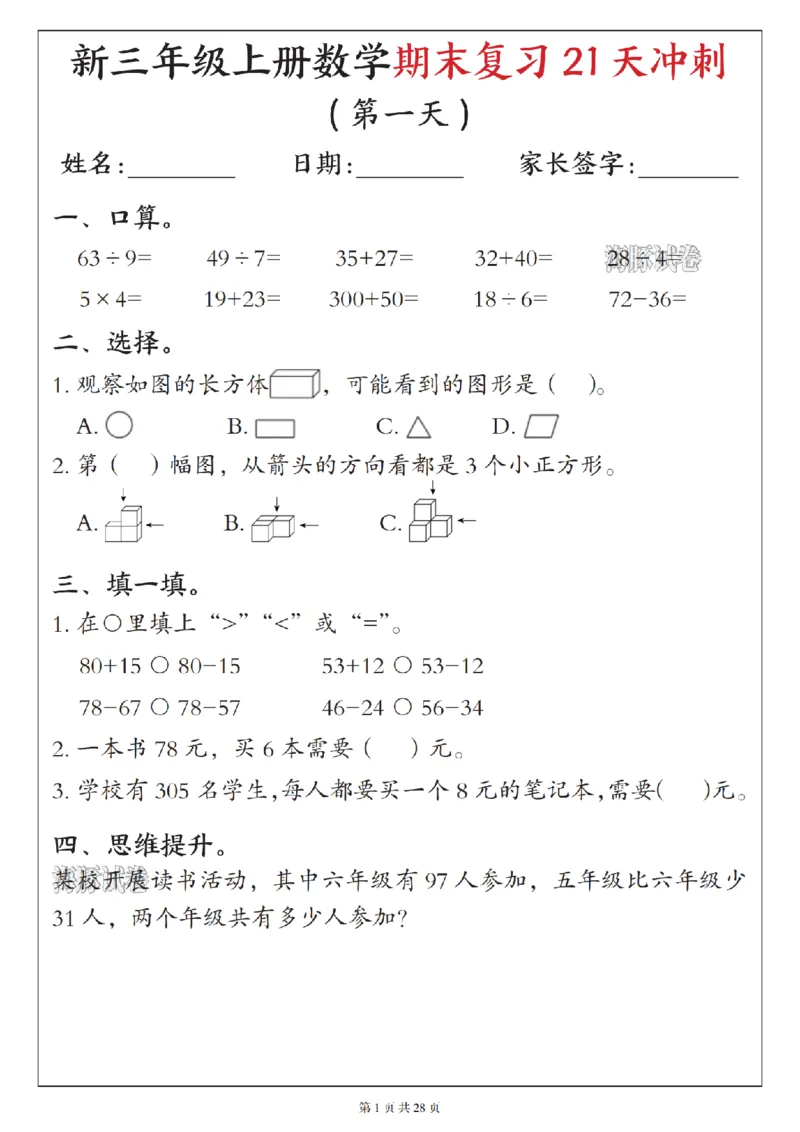 新三年级上册数学期末复习21天冲刺
（第一天）
姓名：________ 日期：________ 家长签字：________
一、口算。
63÷9= 49÷7= 35+27= 32+40= 28÷4=
海豚试卷
5×4= 19+23= 300+50= 18÷6= 72-36=
二、选择。
1. 观察如图的长方体，可能看到的图形是（ ）。
A. B. C. D.
2. 第（ ）幅图，从箭头的方向看都是3个小正方形。
A. B. C.
三、填一填。
1. 在○里填上“>”“<”或“=”。
80+15 ○ 80-15 53+12 ○ 53-12
78-67 ○ 78-57 46-24 ○ 56-34
2. 一本书78元，买6本需要（ ）元。
3. 学校有305名学生，每人都要买一个8元的笔记本，需要( )元。
四、思维提升。
海豚试卷
某校开展读书活动，其中六年级有97人参加，五年级比六年级少
31人，两个年级共有多少人参加？
第1页共28页